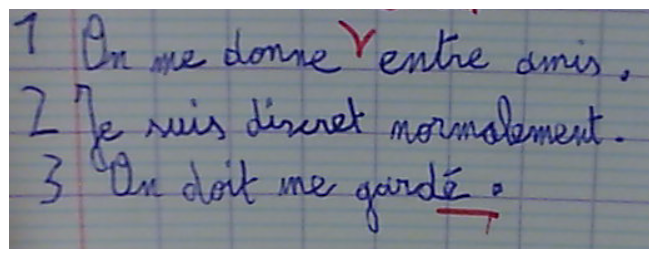 1 On me donne entre amis.
2 Je suis discret normalement.
3 On doit me gardé.